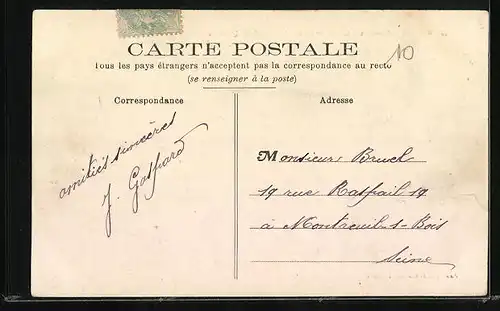 CARTE POSTALE
10
Tous les pays étrangers n'acceptent pas la correspondance au recto
(se renseigner à la poste)
Correspondance
Adresse
amitiés sincères
J. Gaspard
Monsieur Bruel
19 rue Raspail 19
à Montreuil-s-Bois
Seine